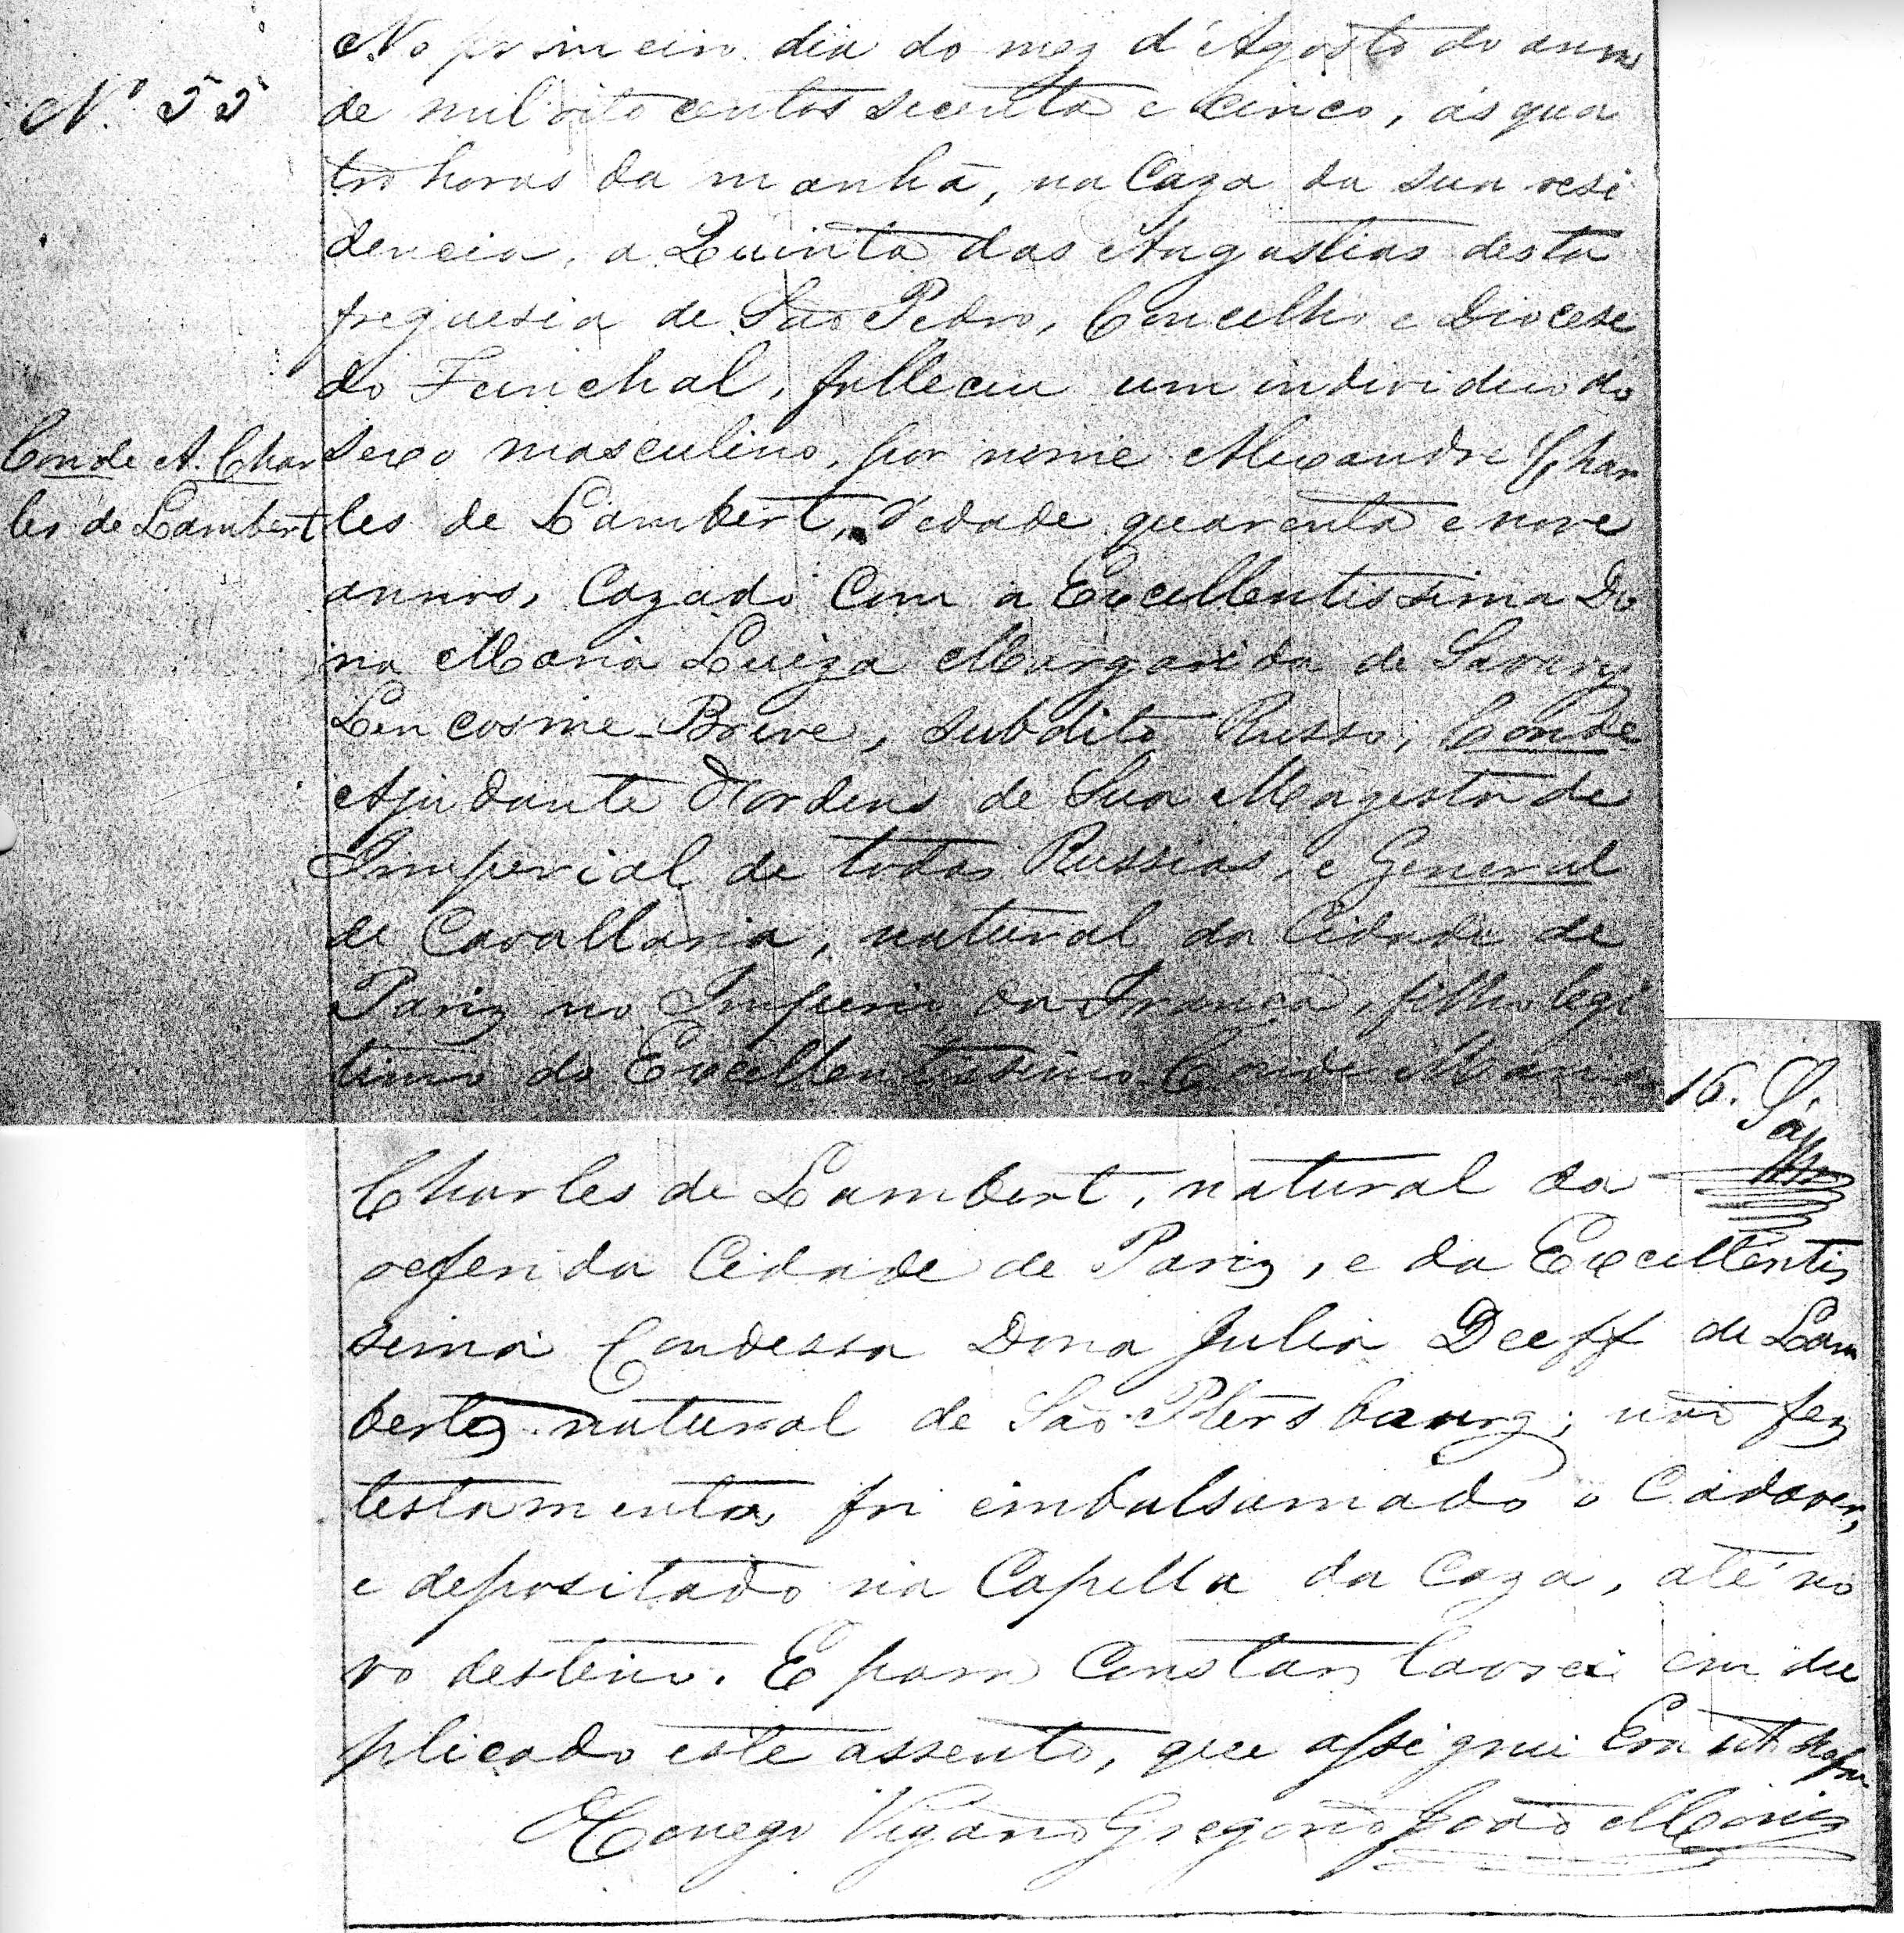 Nº 55
No primeiro dia do mez d'Agosto do anno
de mil oito centos secenta e cinco, ás qua
tro horas da manhã, na Caza da sua resi
dencia, a Quinta das Angustias desta
freguesia de São Pedro, Concelho e Diocese
do Funchal, falleceu um individuo do
Conde A. Char
sexo masculino, por nome Alexandre Char
les de Lambert
les de Lambert, d'edade quarenta e nove
annos, Cazado Com a Excellentissima Do
na Maria Luiza Margarida de Savary
Lencosme-Breve, subdito Russo, Conde
Ajudante d'ordens de Sua Magestade
Imperial de todas Russias, e General
de Cavallaria, natural da Cidade de
Pariz no Imperio da França, filho legi
timo do Excellentissimo Conde
16. Sá
Charles de Lambert, natural da
referida Cidade de Pariz, e da Excellentis
sima Condessa Dona Julia Deeff de Lam
bert, natural de São Petersbourg; não fez
testamento, foi embalsamado o Cadaver,
e depositado na Capella da Caza, até no
vo destino. E para Constar lavrei em du
plicado este assento, que assignei Era ut supra
O Conego Vigario Gregorio João Moniz